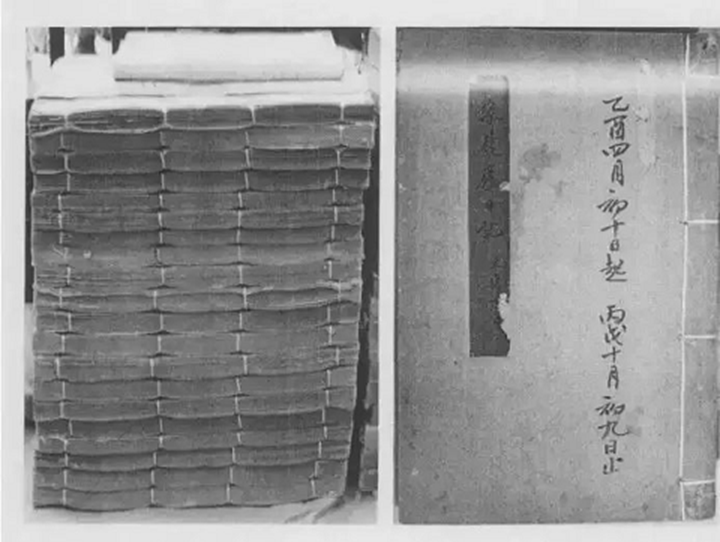 乙酉四月初十日起 丙戌十月初九日止
日記